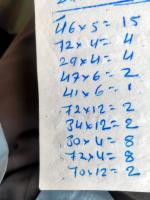 46×5=15
72×4=4
29×4=4
47×6=2
41×6=1
72×12=2
34×12=2
30×4=8
72×4=8
70×12=2